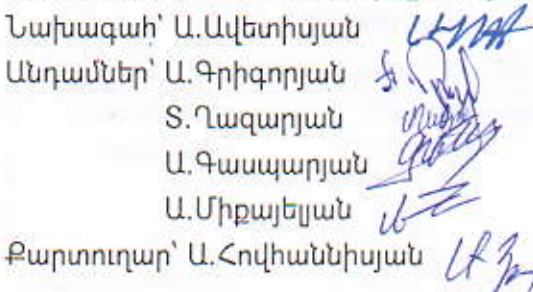 Նախագահ՝ Ա.Ավետիսյան
Անդամներ՝ Ա.Գրիգորյան
Տ.Ղազարյան
Ա.Գասպարյան
Ա.Միքայելյան
Քարտուղար՝ Ա.Հովհաննիսյան